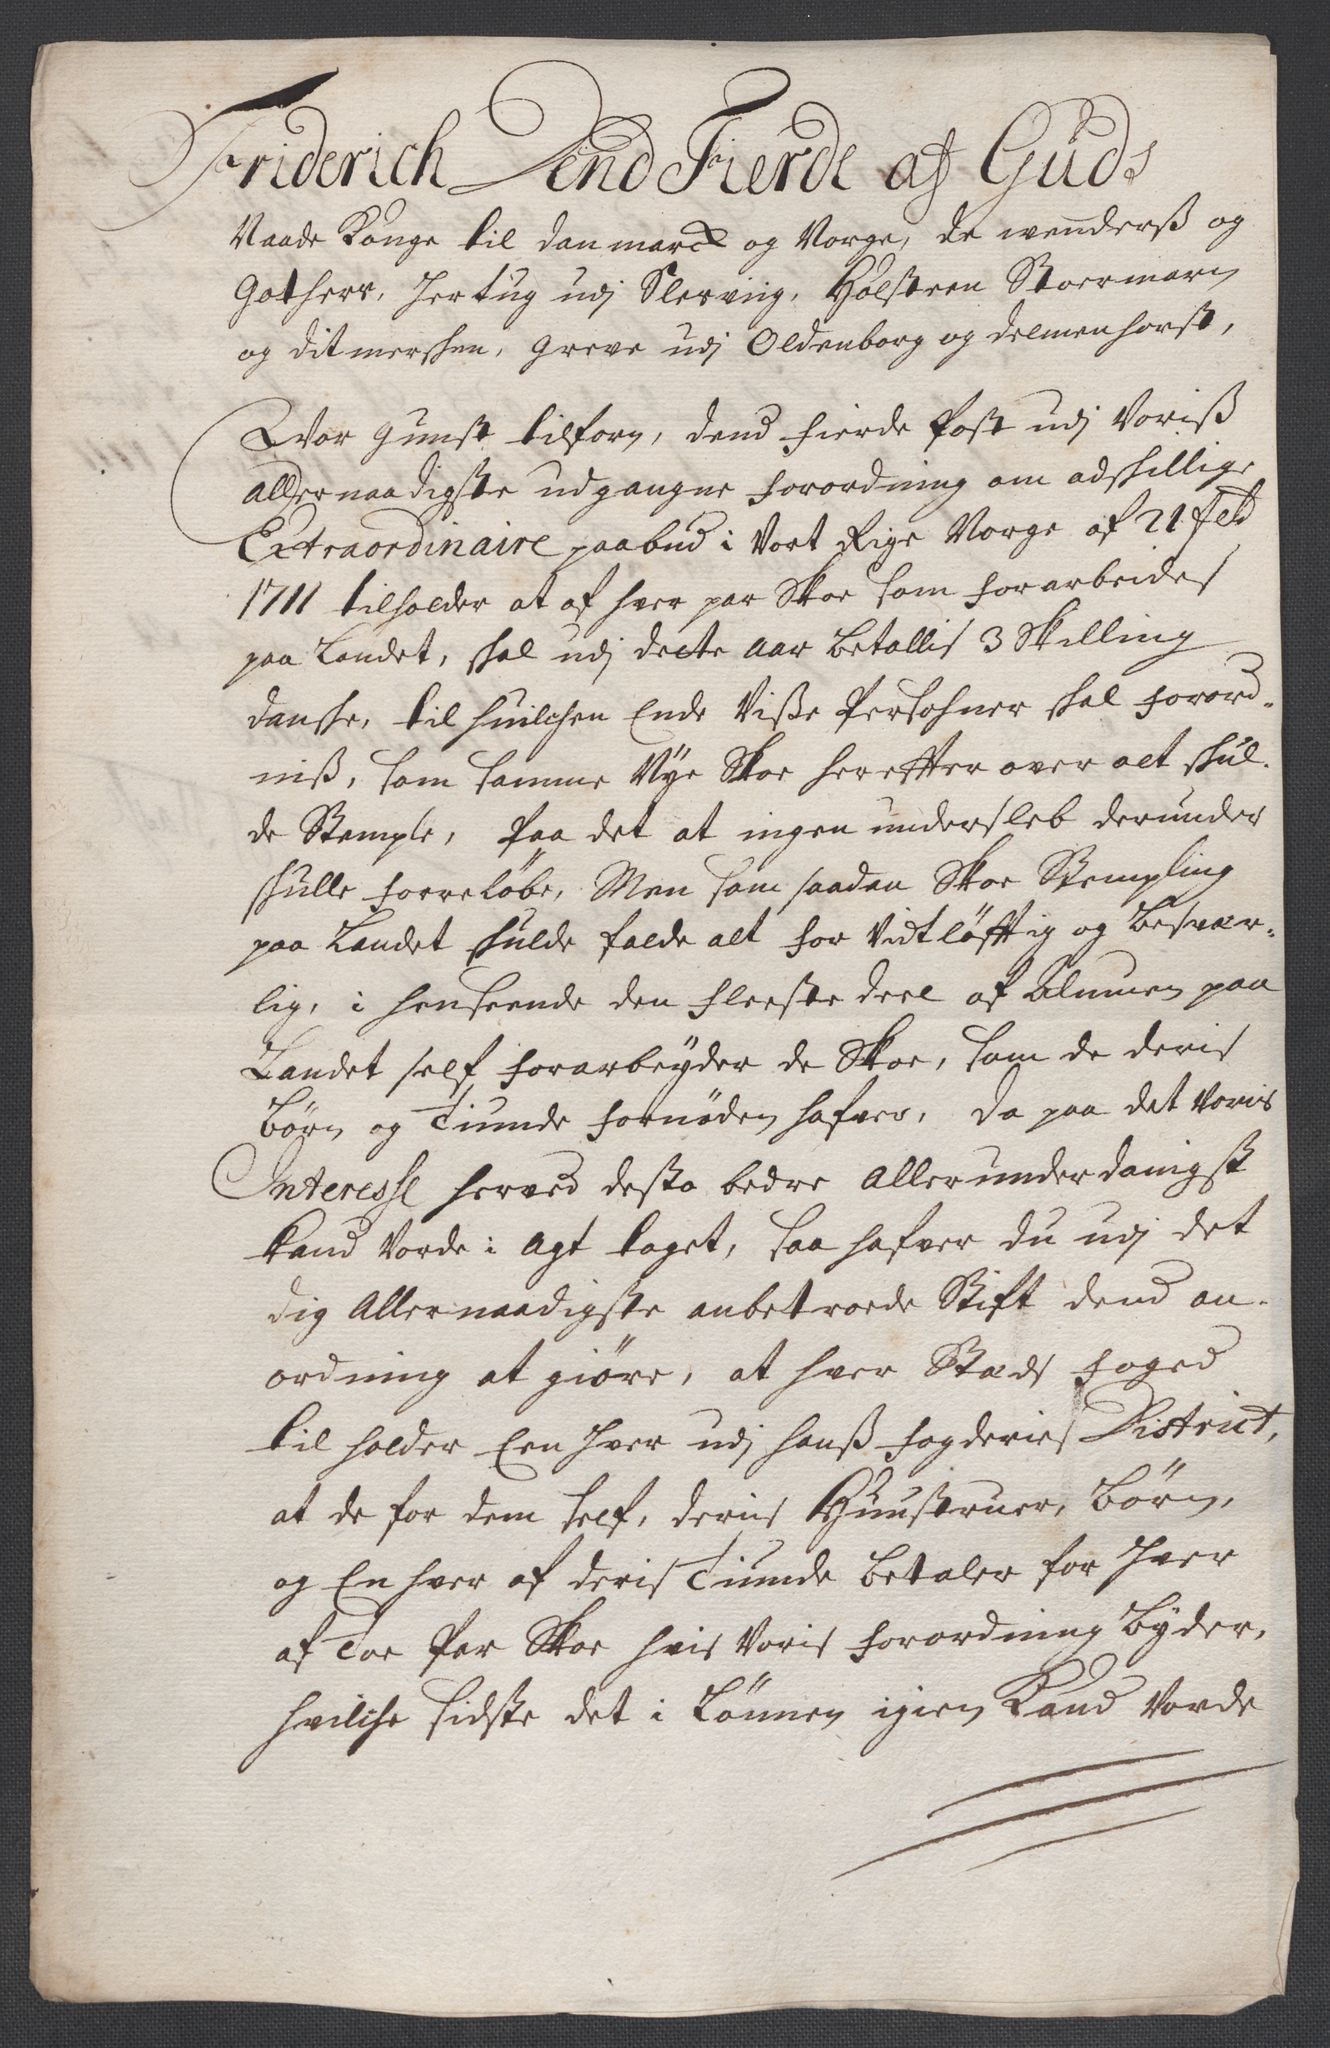 Friderich Dend Fierde af Guds
Naade Konge til Danmarck og Norge, de wenderß og
Gother, Hertug udj Slesvig, Holsteen Stoermarn
og Ditmershen, Greve udj Oldenborg og Delmenhorst,
Wor gunst tilforn, dend fierde Post udj Voriß
allernaadigste udgangne forordning om adskillige
Extraordinaire paabud i Vort Rige Norge af 21 feb
1711 tilholder at af hver par Skoe som forarbeides
paa Landet, skal udj dette aar betallis 3 Skilling
danske, til huilchen Ende Viße Persohner skal forord-
niß, som samme Nye Skoe hereffter over alt skul-
de Stemple, Paa det at ingen undersleb derunder
skulle forreløbe, Men som saadan Skoe Stempling
paa Landet skulde falde alt for Vidtløfftig og besvær-
lig, i henseende den fleeste deel af Almuen paa
Landet self forarbeyder de Skoe, som de deris
børn og Tiunde fornøden hafver, Da paa det voris
Interesse herved desto bedre Allerunderdanigst
kand vorde i Agt taget, saa hafver du udj det
dig Allernaadigste anbetroede Stift dend an-
ordning at giøre, at hver Stæds foged
tilholder Een hver udj hanß fogderies District,
at de for dem self, deris Hustruer, børn,
og En hver af deris Tiunde betaler for hver
af Toe Par Skoe hvis Voris forordning byder,
hvilche sidste det i Lønnen igien Kand Vorde